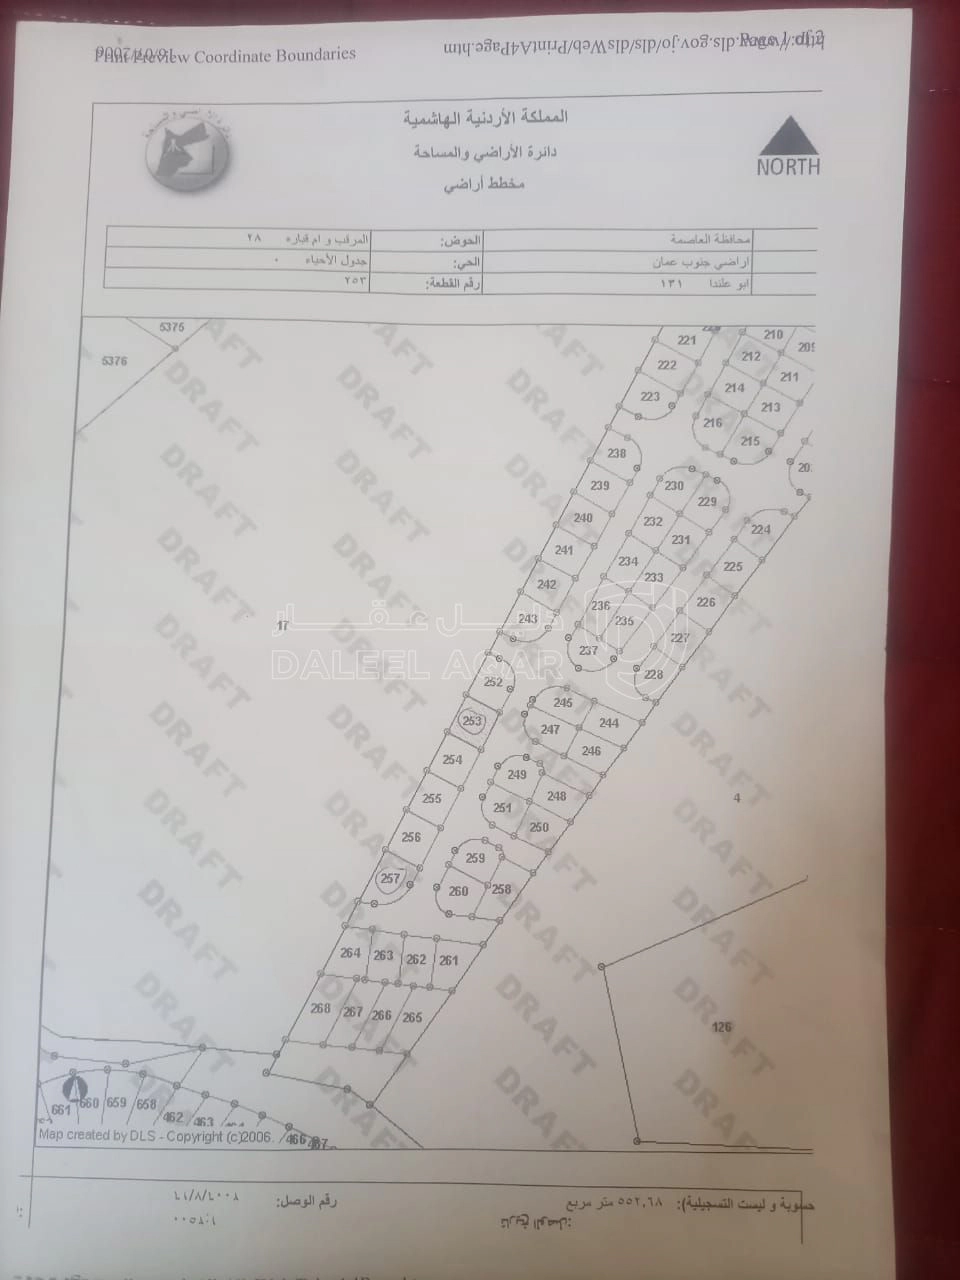 Print Preview Coordinate Boundaries
المملكة الأردنية الهاشمية
دائرة الأراضي والمساحة
مخطط أراضي
NORTH
محافظة العاصمة الحوض: المرقب و ام قباره ٢٨
اراضي جنوب عمان الحي: جدول الأحياء ٠
ابو علندا ١٣١ رقم القطعة: ٢٥٣
5375
5376
221
210
222
212
211
223
214
213
216
215
238
239
230
229
240
232
224
241
231
234
225
242
233
236
226
243
235
227
237
228
252
245
244
253
247
246
254
249
248
255
251
250
256
259
258
257
260
264 263 262 261
268 267 266 265
17
4
126
دليل عقار
DALEEL AQAR
DRAFT
661 660 659 658 462 463 466 467
Map created by DLS - Copyright (c)2006.
حسوبة و ليست التسجيلية): ٥٥٢,٦٨ متر مربع
رقم الوصل:
تاريخ الوصل: